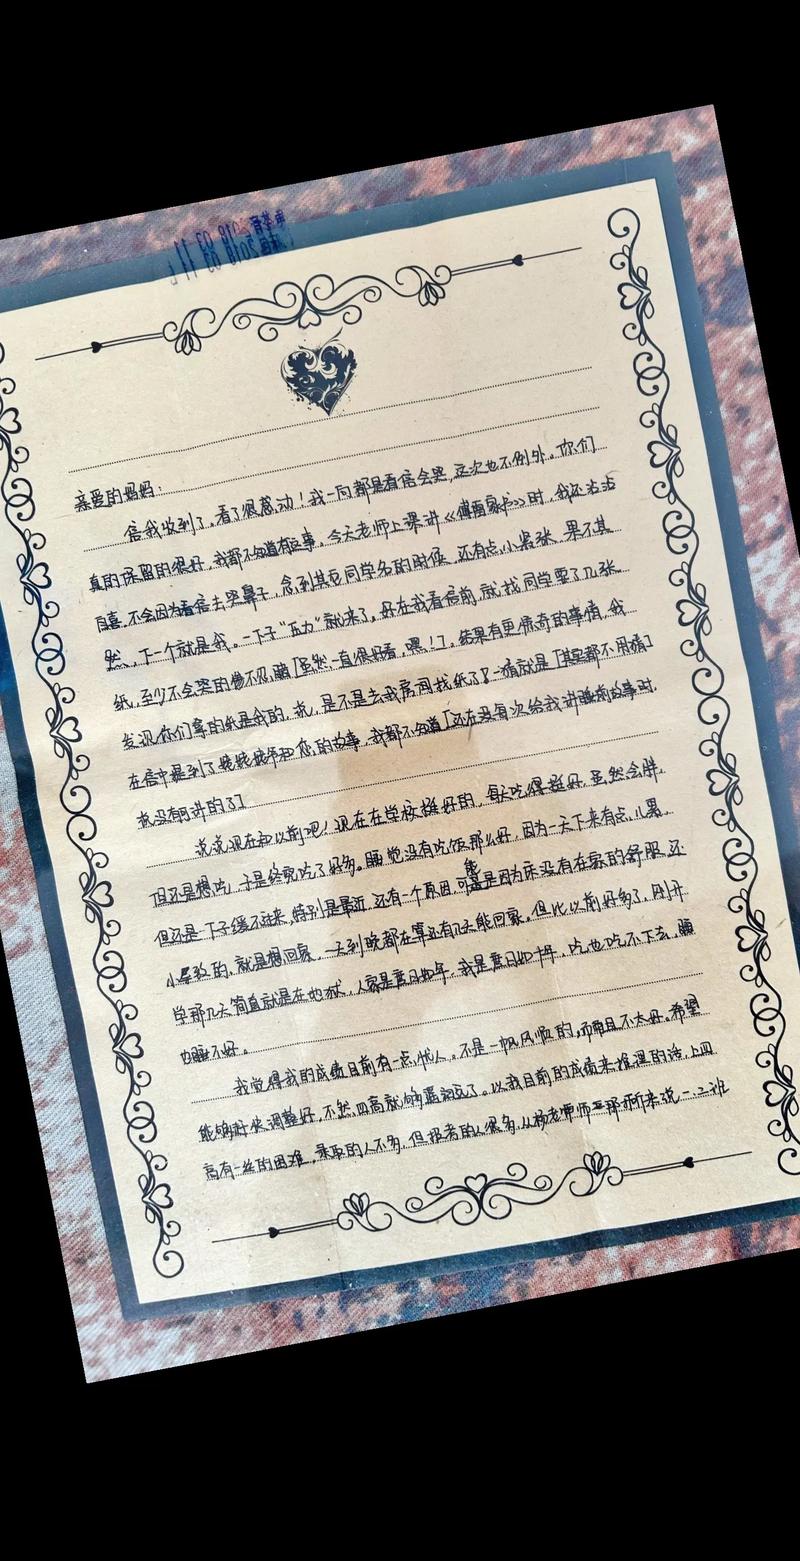 亲爱的妈妈：
信我收到了，看了很感动！我一向都是看信会哭，这次也不例外。你们
真的保留的很好，我都不知道有这事。今天老师上课讲《傅雷家书》时，我还沾沾
自喜，不会因为看信去哭鼻子，念到其它同学名的时候，还有点小紧张，果不其
然，下一个就是我。一下子“压力”就来了，好在我看信前，就找同学要了几张
纸，至少不会哭的惨不忍睹［虽然一直很好看，嘿！］，结果有更惊奇的事情，我
发现你们拿的纸是我的，说，是不是去我房间找纸了？一猜就是［其实都不用猜］
在信中提到了姥姥姥爷和您的故事，我都不知道［还在没每次给我讲睡前故事时，
就没有可讲的了］
说说现在和以前吧！现在在学校挺好的，每天吃得挺好，虽然会胖，
但还是想吃，于是终究吃了好多。睡觉没有吃饭那么好，因为一天下来有点儿累，
但还是一下子缓不过来，特别是最近，还有一个原因，可能是因为床没有在家的舒服，还
小 的，就是想回家，一天到晚都在算还有几天能回家。但比以前好多了，刚开
学那几天简直就是在地狱，人家是度日如年，我是度日如十年，吃也吃不下去，睡
也睡不好。
我觉得我的成绩目前有一点忧人。不是一帆风顺的，而且不太好。希望
能够尽快调整好，不然，四高就够遥远了。以我目前的成绩来推温的话，上四
高有一丝的困难，录取的人不多，但报考的人很多，从杨老师 那 来说一、二班